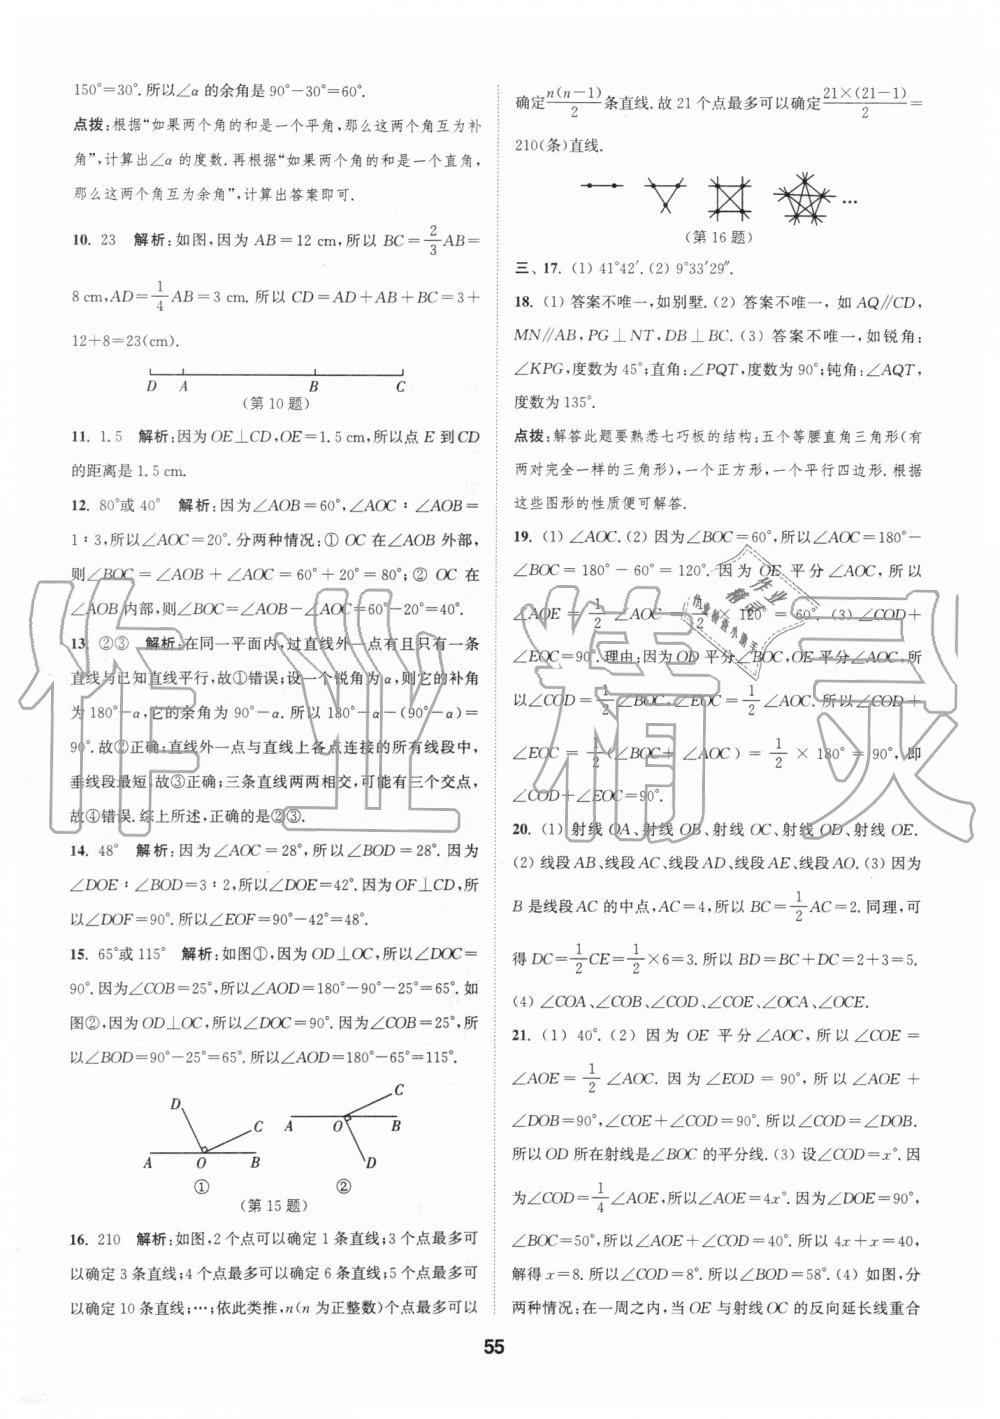 150°=30°.所以∠α的余角是90°-30°=60°.
点拨:根据“如果两个角的和是一个平角,那么这两个角互为补
角”,计算出∠α的度数.再根据“如果两个角的和是一个直角,
那么这两个角互为余角”,计算出答案即可.
10. 23 解析:如图,因为AB=12 cm,所以BC=2/3AB=
8 cm,AD=1/4AB=3 cm.所以CD=AD+AB+BC=3+
12+8=23(cm).
D A B C
(第10题)
11. 1.5 解析:因为OE⊥CD,OE=1.5 cm,所以点E到CD
的距离是1.5 cm.
12. 80°或40° 解析:因为∠AOB=60°,∠AOC∶∠AOB=
1∶3,所以∠AOC=20°.分两种情况:①OC在∠AOB外部,
则∠BOC=∠AOB+∠AOC=60°+20°=80°;②OC在
∠AOB内部,则∠BOC=∠AOB-∠AOC=60°-20°=40°.
13. ②③ 解析:在同一平面内,过直线外一点有且只有一条
直线与已知直线平行,故①错误;设一个锐角为α,则它的补角
为180°-α,它的余角为90°-α.所以180°-α-(90°-α)=
90°.故②正确;直线外一点与直线上各点连接的所有线段中,
垂线段最短,故③正确;三条直线两两相交,可能有三个交点,
故④错误.综上所述,正确的是②③.
14. 48° 解析:因为∠AOC=28°,所以∠BOD=28°.因为
∠DOE∶∠BOD=3∶2,所以∠DOE=42°.因为OF⊥CD,所
以∠DOF=90°.所以∠EOF=90°-42°=48°.
15. 65°或115° 解析:如图①,因为OD⊥OC,所以∠DOC=
90°.因为∠COB=25°,所以∠AOD=180°-90°-25°=65°.如
图②,因为OD⊥OC,所以∠DOC=90°.因为∠COB=25°,所
以∠BOD=90°-25°=65°.所以∠AOD=180°-65°=115°.
D C A O B ①
C A O B D ②
(第15题)
16. 210 解析:如图,2个点可以确定1条直线;3个点最多可
以确定3条直线;4个点最多可以确定6条直线;5个点最多可
以确定10条直线;…;依此类推,n(n为正整数)个点最多可以
确定n(n-1)/2条直线.故21个点最多可以确定21×(21-1)/2=
210(条)直线.
…
(第16题)
三、17. (1) 41°42′.(2) 9°33′29″.
18. (1) 答案不唯一,如别墅.(2) 答案不唯一,如AQ∥CD,
MN∥AB,PG⊥NT,DB⊥BC.(3) 答案不唯一,如锐角:
∠KPG,度数为45°;直角:∠PQT,度数为90°;钝角:∠AQT,
度数为135°.
点拨:解答此题要熟悉七巧板的结构:五个等腰直角三角形(有
两对完全一样的三角形),一个正方形,一个平行四边形.根据
这些图形的性质便可解答.
19. (1) ∠AOC.(2) 因为∠BOC=60°,所以∠AOC=180°-
∠BOC=180°-60°=120°.因为OE平分∠AOC,所以
∠AOE=1/2∠AOC=1/2×120°=60°.(3) ∠COD+
∠EOC=90°.理由:因为OD平分∠BOC,OE平分∠AOC,所
以∠COD=1/2∠BOC,∠EOC=1/2∠AOC.所以∠COD+
∠EOC=1/2(∠BOC+∠AOC)=1/2×180°=90°,即
∠COD+∠EOC=90°.
20. (1) 射线OA、射线OB、射线OC、射线OD、射线OE.
(2) 线段AB、线段AC、线段AD、线段AE、线段AO.(3) 因为
B是线段AC的中点,AC=4,所以BC=1/2AC=2.同理,可
得DC=1/2CE=1/2×6=3.所以BD=BC+DC=2+3=5.
(4) ∠COA、∠COB、∠COD、∠COE、∠OCA、∠OCE.
21. (1) 40°.(2) 因为OE平分∠AOC,所以∠COE=
∠AOE=1/2∠AOC.因为∠EOD=90°,所以∠AOE+
∠DOB=90°,∠COE+∠COD=90°.所以∠COD=∠DOB.
所以OD所在射线是∠BOC的平分线.(3) 设∠COD=x°.因
为∠COD=1/4∠AOE,所以∠AOE=4x°.因为∠DOE=90°,
∠BOC=50°,所以∠AOE+∠COD=40°.所以4x+x=40,
解得x=8.所以∠COD=8°.所以∠BOD=58°.(4) 如图,分
两种情况:在一周之内,当OE与射线OC的反向延长线重合
55
作业精灵
作业
精灵